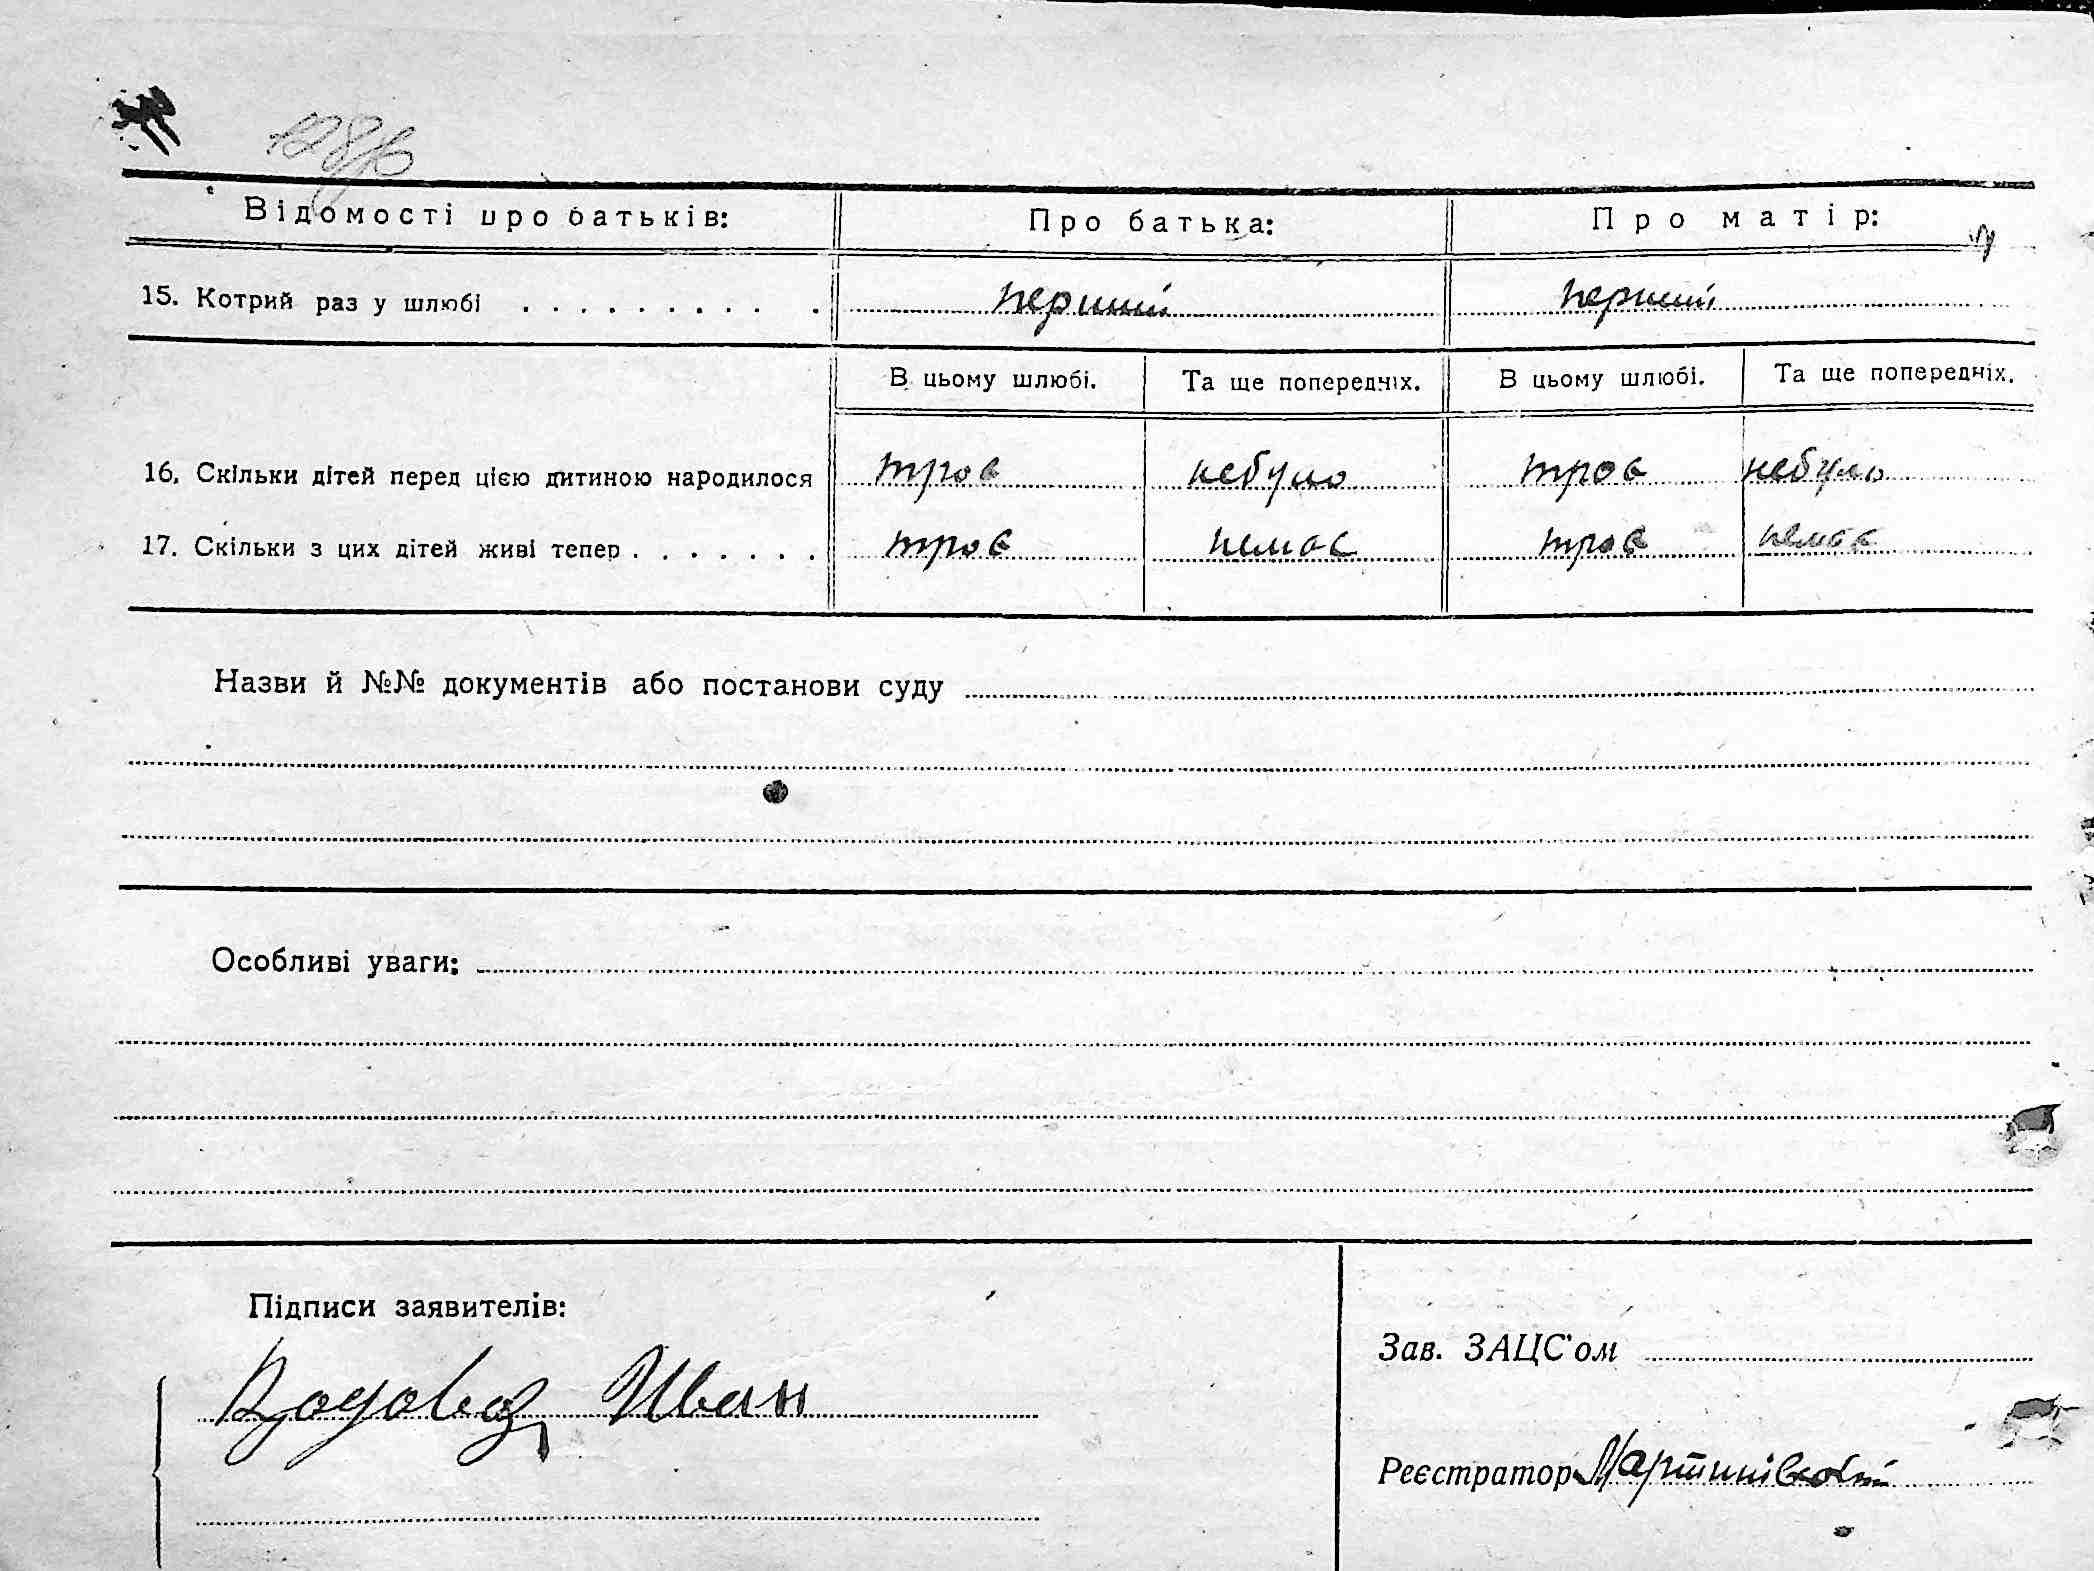 128/б
Відомості про батьків: Про батька: Про матір:
15. Котрий раз у шлюбі . . . . . . . . . . . перший перший
В цьому шлюбі. Та ще попередніх. В цьому шлюбі. Та ще попередніх.
16. Скільки дітей перед цією дитиною народилося троє небуло троє небуло
17. Скільки з цих дітей живі тепер . . . . . . . троє немає троє немає
Назви й №№ документів або постанови суду
Особливі уваги:
Підписи заявителів:
Зав. ЗАЦС'ом
Иван
Реєстратор Мартинівський